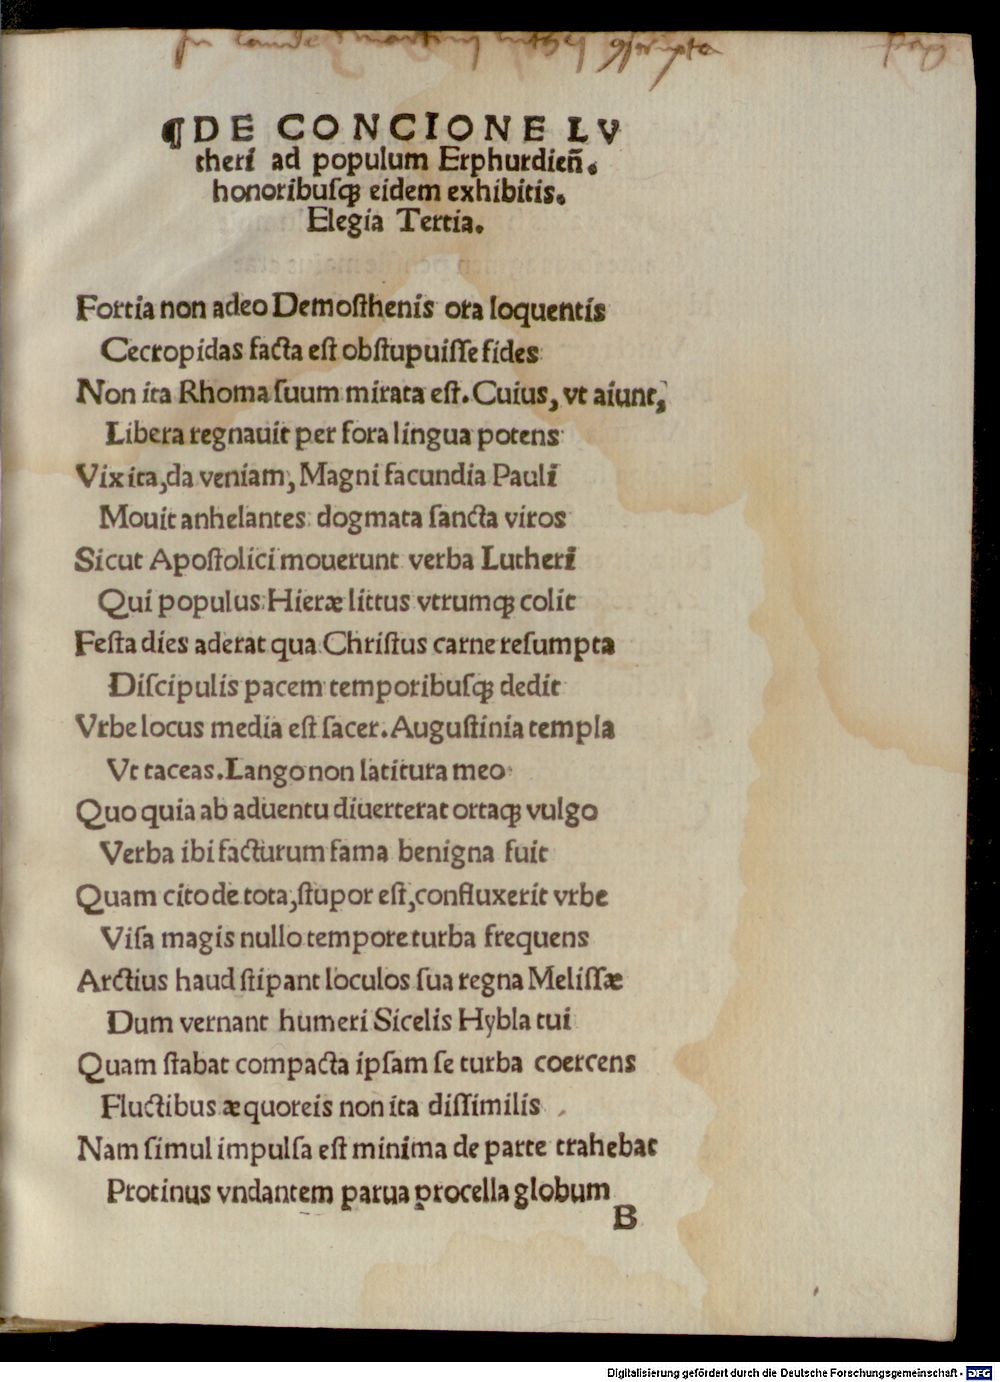 In laude martini luthery
¶DE CONCIONE LV
theri ad populum Erphurdieñ.
honoribuſqꝫ eidem exhibitis.
Elegia Tertia.
Fortia non adeo Demoſthenis ora loquentis
Cecropidas facta eſt obſtupuiſſe fides
Non ita Rhoma ſuum mirata eſt. Cuius, vt aiunt,
Libera regnauit per fora lingua potens
Vix ita, da veniam, Magni facundia Pauli
Mouit anhelantes dogmata ſancta viros
Sicut Apoſtolici mouerunt verba Lutheri
Qui populus Hieræ littus vtrumqꝫ colit
Feſta dies aderat qua Chriſtus carne reſumpta
Diſcipulis pacem temporibuſqꝫ dedit
Vrbe locus media eſt ſacer. Auguſtinia templa
Vt taceas. Lango non latitura meo
Quo quia ab aduentu diuerterat ortaqꝫ vulgo
Verba ibi facturum fama benigna fuit
Quam cito de tota, ſtupor eſt, confluxerit vrbe
Viſa magis nullo tempore turba frequens
Arctius haud ſtipant loculos ſua regna Meliſſæ
Dum vernant humeri Sicelis Hybla tui
Quam ſtabat compacta ipſam ſe turba coercens
Fluctibus æquoreis non ita diſſimilis
Nam ſimul impulſa eſt minima de parte trahebat
Protinus vndantem parua procella globum
B
Digitalisierung gefördert durch die Deutsche Forschungsgemeinschaft - DFG